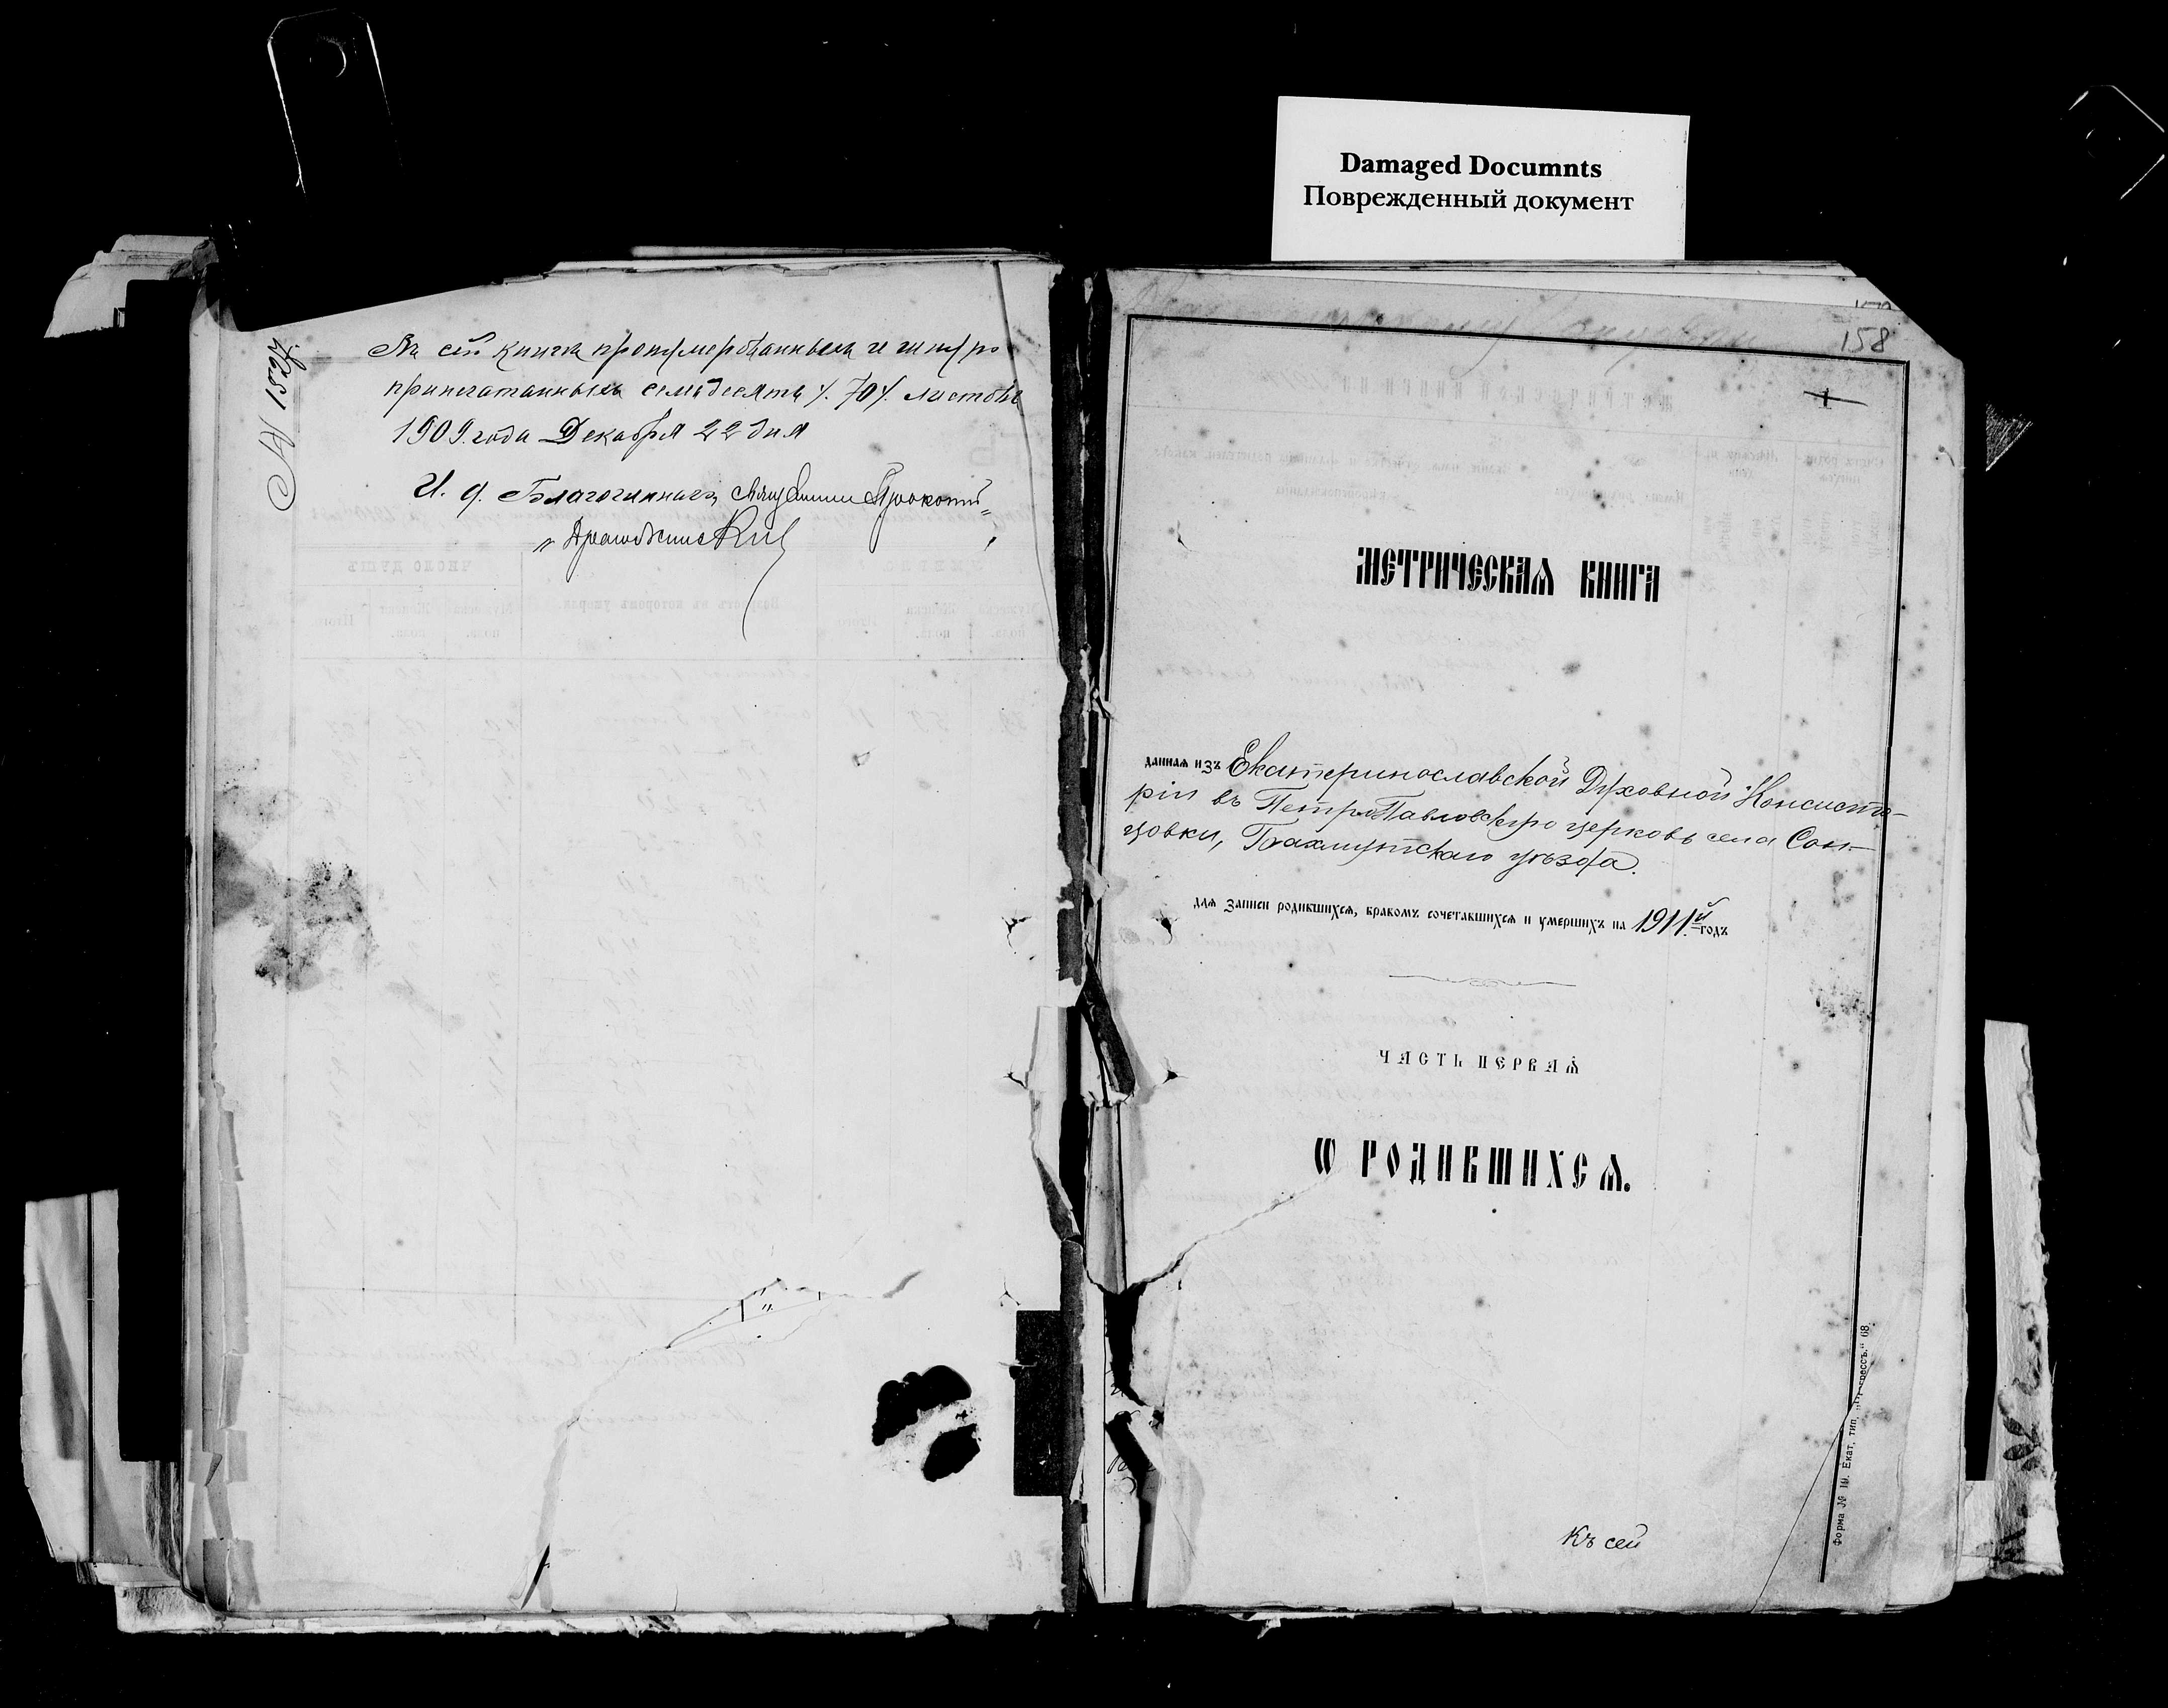 Damaged Documnts
Поврежденный документ
Въ сей книгѣ пронумерованныхъ и шнуро
припечатанныхъ семьдесятъ /. 70 /. листовъ
1909. года Декабря 22 дня
И. д. Благочиннаго, Священникъ Прокопій
158
1
МЕТРИЧЕСКАЯ КНИГА
данная изъ Екатеринославской Духовной Консисто-
ріи въ Петро Павловскую церковь села Сон-
цовки, Бахмутскаго уѣзда.
для записи родившихся, бракомъ сочетавшихся и умершихъ на 1911.й годъ
ЧАСТЬ ПЕРВАЯ
Ѡ РОДИВШИХСЯ.
Къ сей
Форма № 10. Екат. тип. 68.